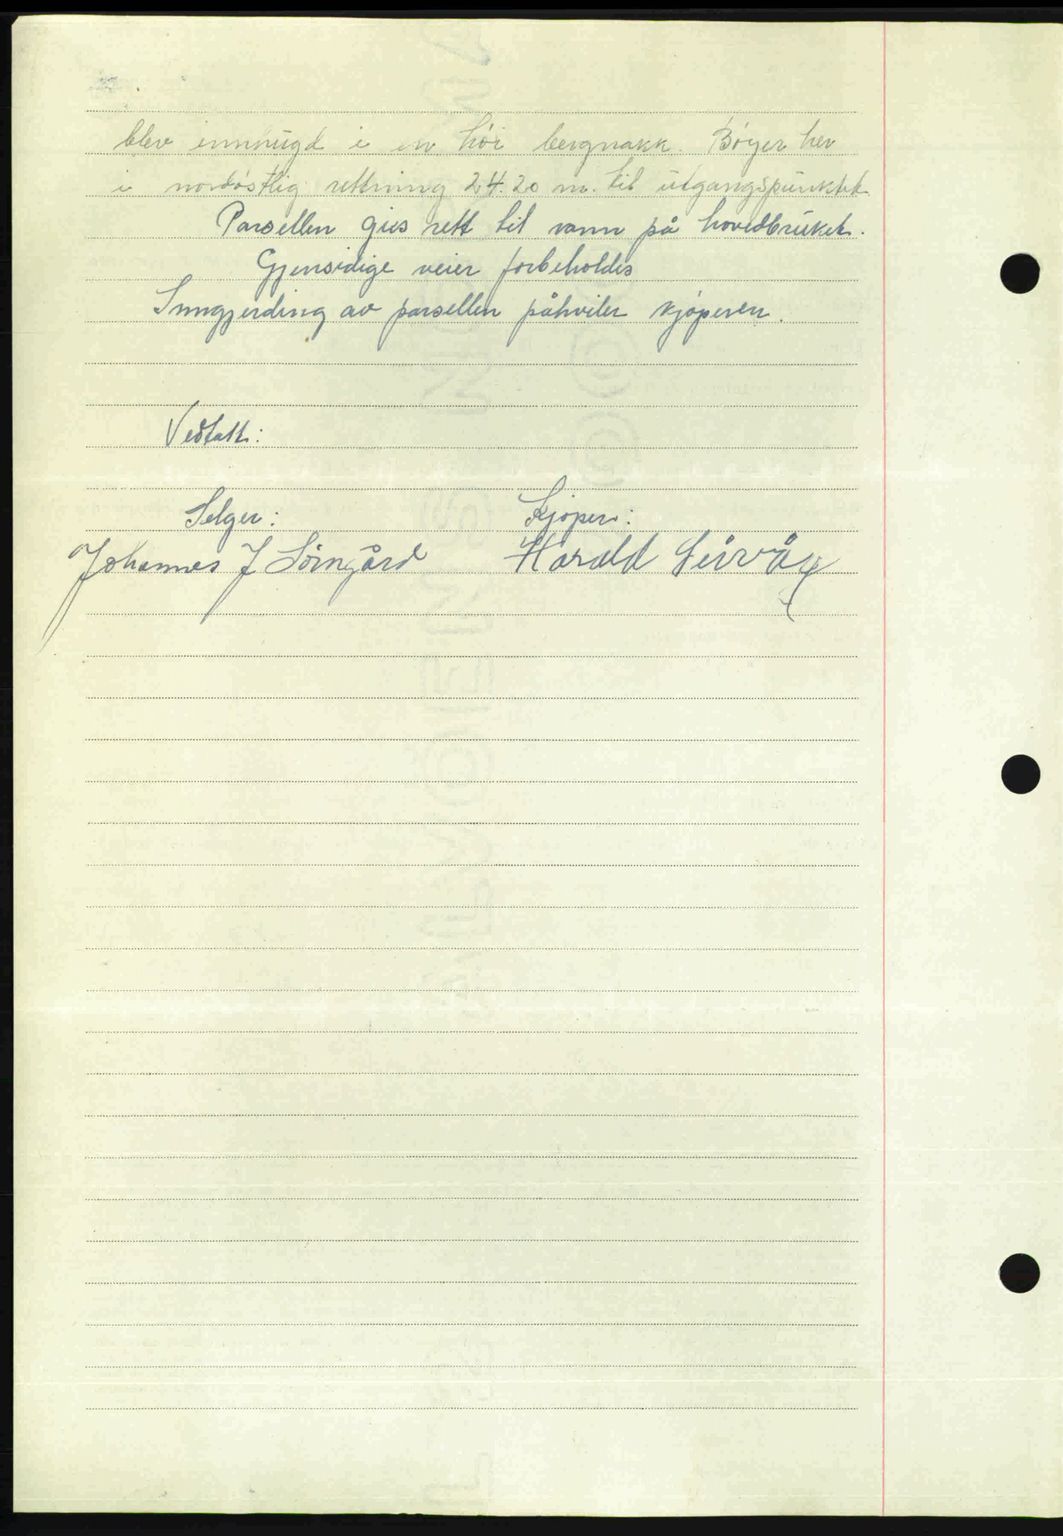 blev innhugd i en høi bergnakk. Bøyer her
i nordøstlig rettning 24.20 m. til utgangspunktet
Parsellen gies rett til vann på hovedbruket.
Gjensidige veier forbeholdes
Inngjerding av parsellen påhviler kjøperen.
Vedtatt:
Selger: Kjøper:
Johannes J Sørngård Harald Leirvåg